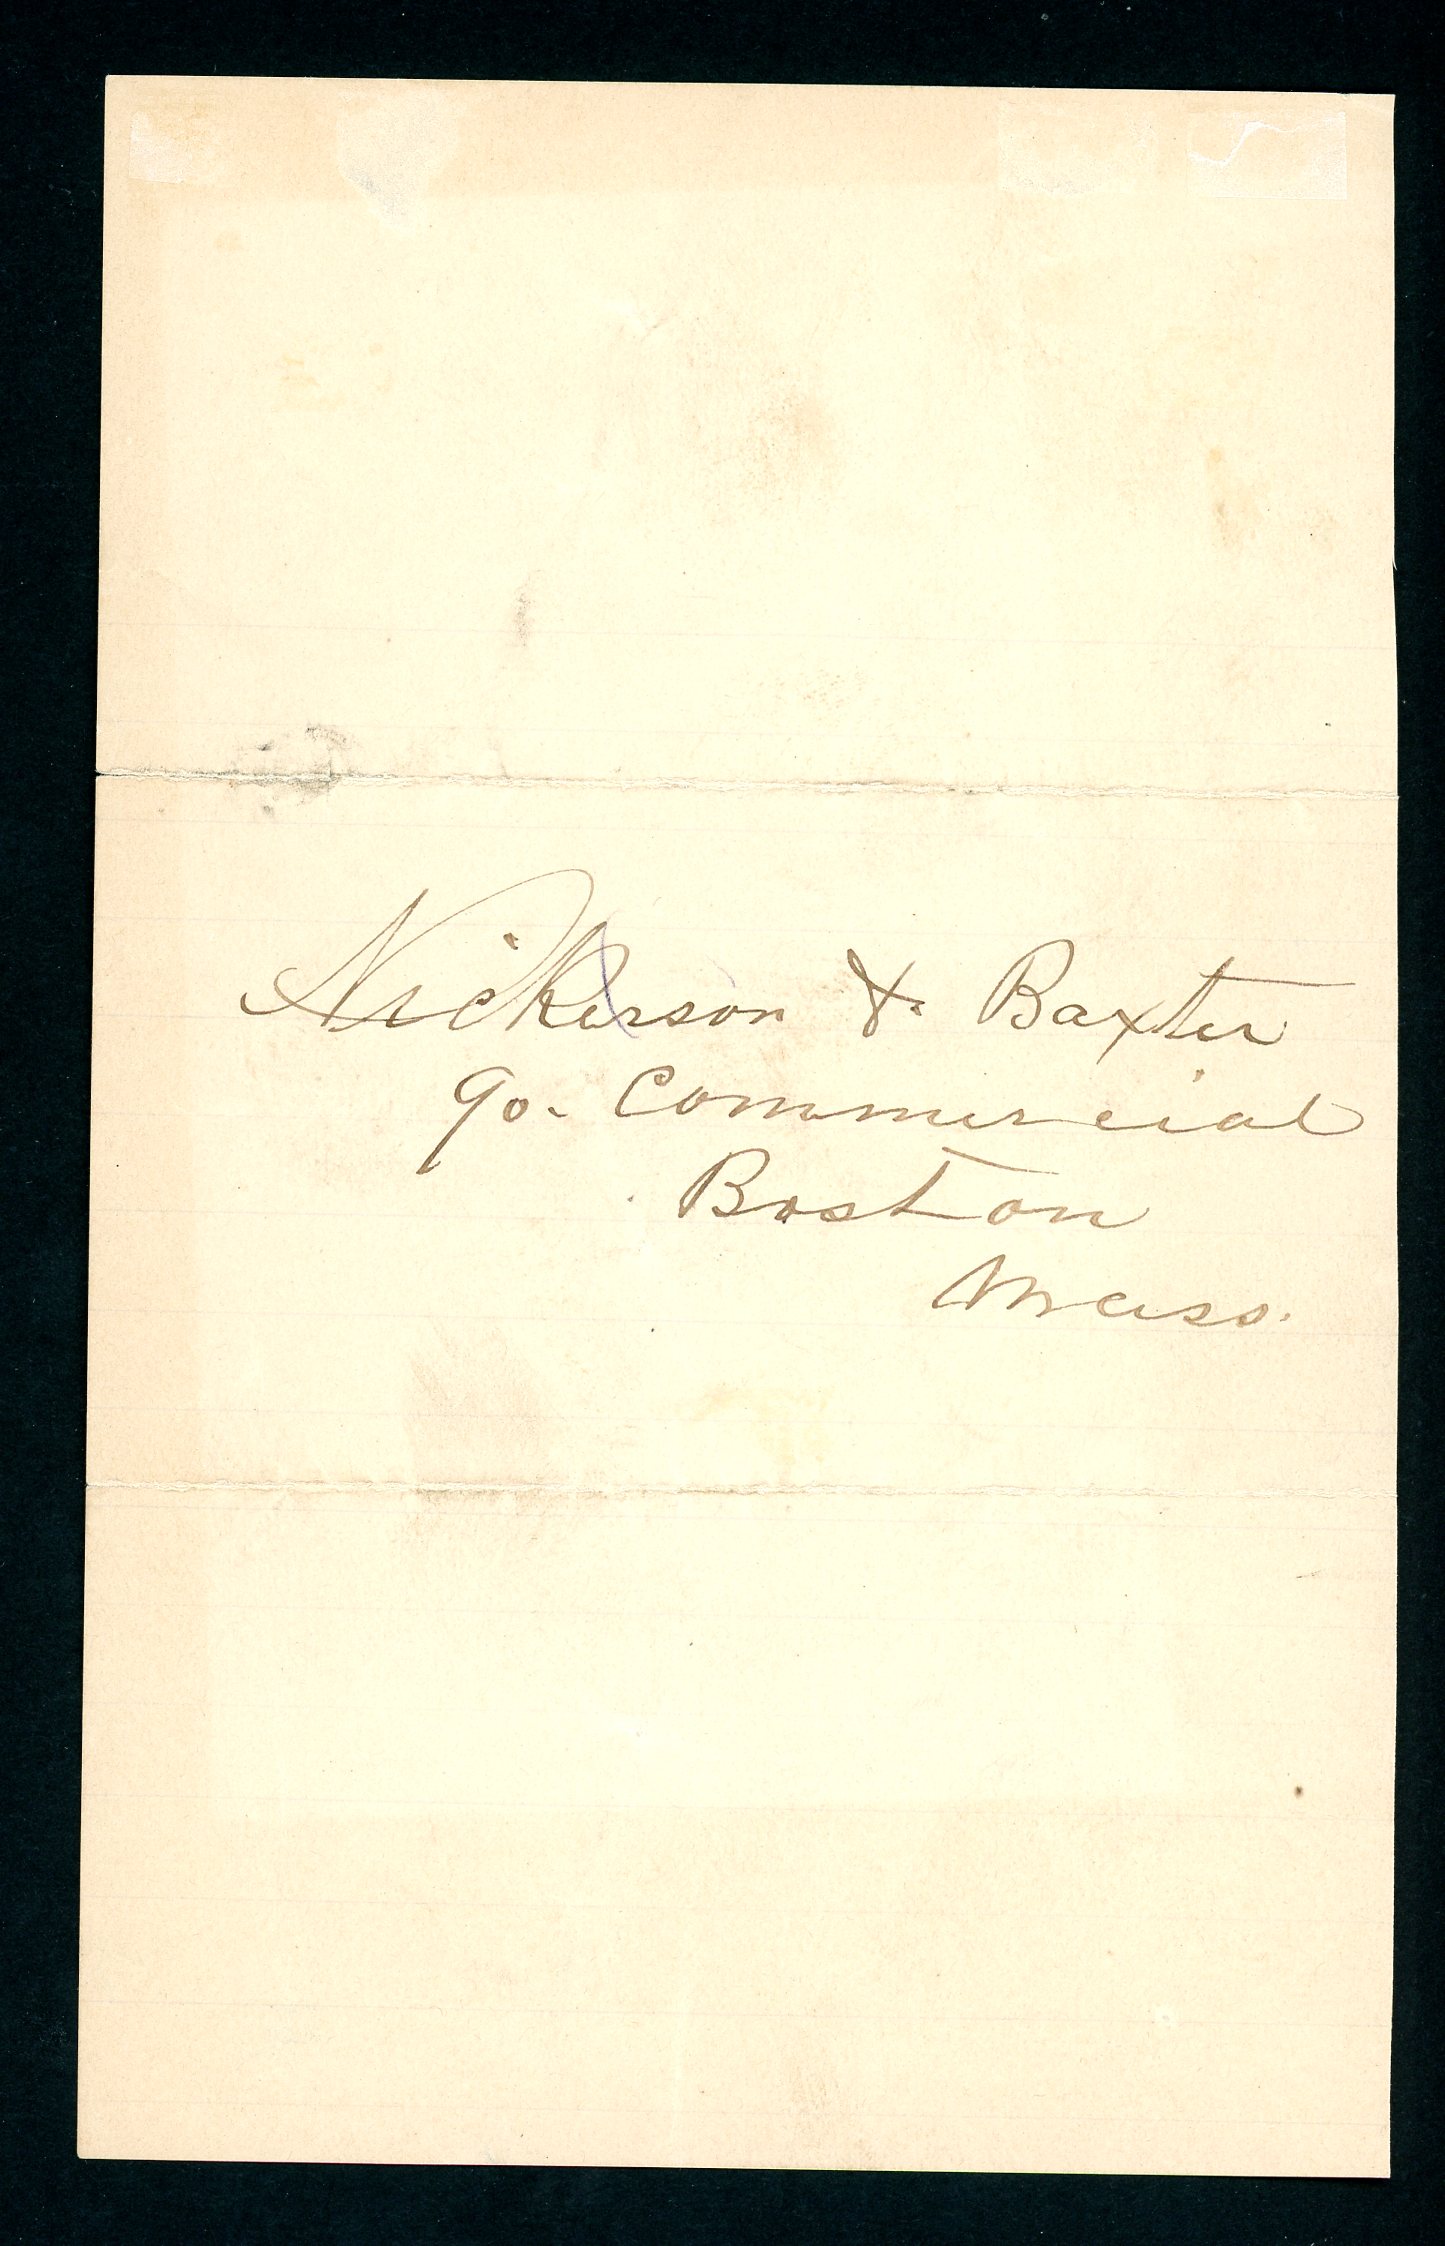 Nickerson & Baxter
90. Commercial
Boston
Mass.